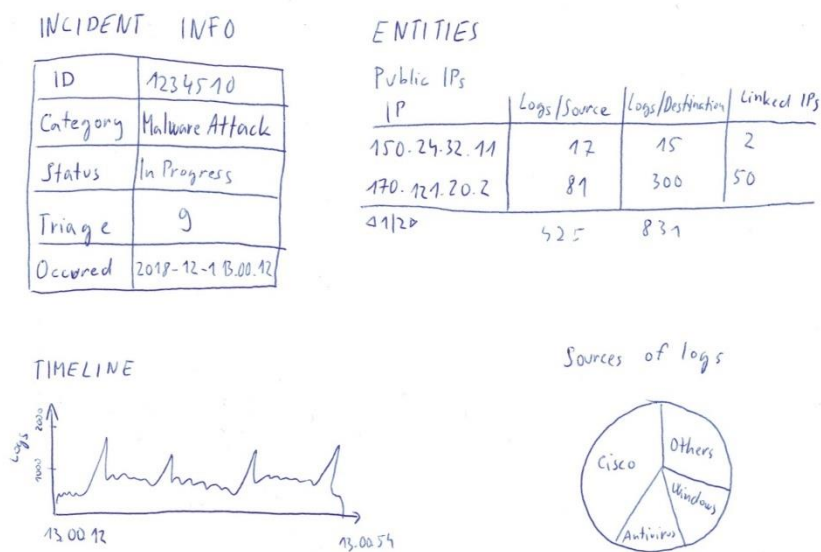 INCIDENT INFO
ID 1234510
Category Malware Attack
Status In Progress
Triage 9
Occured 2018-12-1 13.00.12
ENTITIES
Public IPs
IP Logs/Source Logs/Destination Linked IPs
150.24.32.11 17 15 2
170.121.20.2 81 300 50
◁1/2▷ 425 831
TIMELINE
Logs
2000
1000
13.00 12 13.00.54
Sources of logs
Cisco
Others
Windows
Antivirus